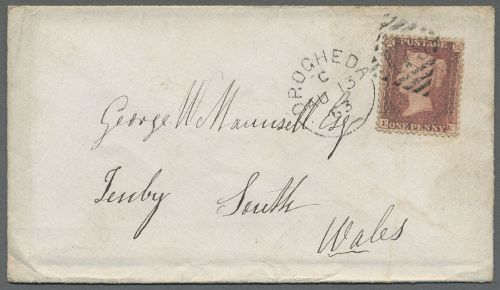 DROGHEDA
C
AU 13
63
POSTAGE
ONE PENNY
George W Maunsell Esq
Tenby South
Wales